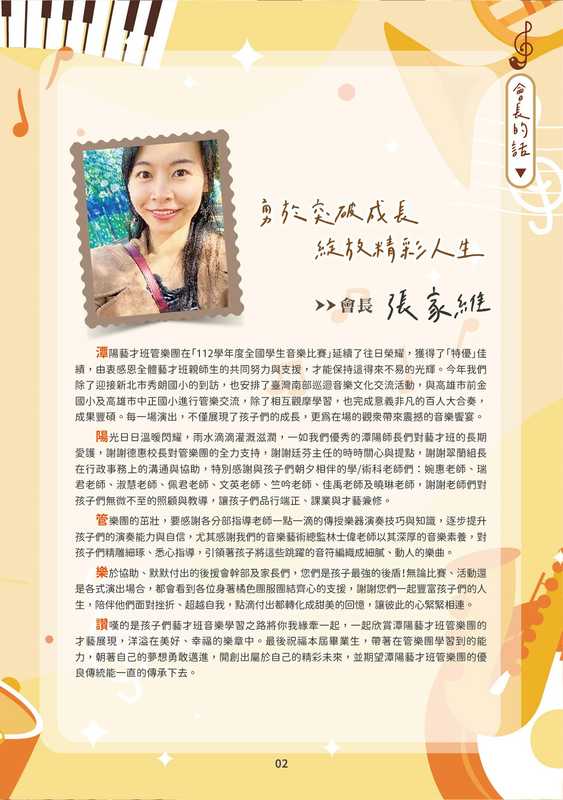 會長的話
勇於突破成長
綻放精彩人生
會長 張家維
潭陽藝才班管樂團在「112學年度全國學生音樂比賽」延續了往日榮耀，獲得了「特優」佳
績，由衷感恩全體藝才班親師生的共同努力與支援，才能保持這得來不易的光輝。今年我們
除了迎接新北市秀朗國小的到訪，也安排了臺灣南部巡迴音樂文化交流活動，與高雄市前金
國小及高雄市中正國小進行管樂交流，除了相互觀摩學習，也完成意義非凡的百人大合奏，
成果豐碩。每一場演出，不僅展現了孩子們的成長，更為在場的觀眾帶來震撼的音樂饗宴。
陽光日日溫暖閃耀，雨水滴滴灌溉滋潤，一如我們優秀的潭陽師長們對藝才班的長期
愛護，謝謝德惠校長對管樂團的全力支持，謝謝廷芬主任的時時關心與提點，謝謝翠蘭組長
在行政事務上的溝通與協助，特別感謝與孩子們朝夕相伴的學/術科老師們：婉惠老師、瑞
君老師、淑慧老師、佩君老師、文英老師、竺吟老師、佳禹老師及曉琳老師，謝謝老師們對
孩子們無微不至的照顧與教導，讓孩子們品行端正、課業與才藝兼修。
管樂團的茁壯，要感謝各分部指導老師一點一滴的傳授樂器演奏技巧與知識，逐步提升
孩子們的演奏能力與自信，尤其感謝我們的音樂藝術總監林士偉老師以其深厚的音樂素養，對
孩子們精雕細琢、悉心指導，引領著孩子將這些跳躍的音符編織成細膩、動人的樂曲。
樂於協助、默默付出的後援會幹部及家長們，您們是孩子最強的後盾！無論比賽、活動還
是各式演出場合，都會看到各位身著橘色團服團結齊心的支援，謝謝您們一起豐富孩子們的人
生，陪伴他們面對挫折、超越自我，點滴付出都轉化成甜美的回憶，讓彼此的心緊緊相連。
讚嘆的是孩子們藝才班音樂學習之路將你我緣牽一起，一起欣賞潭陽藝才班管樂團的
才藝展現，洋溢在美好、幸福的樂章中。最後祝福本屆畢業生，帶著在管樂團學習到的能
力，朝著自己的夢想勇敢邁進，開創出屬於自己的精彩未來，並期望潭陽藝才班管樂團的優
良傳統能一直的傳承下去。
02